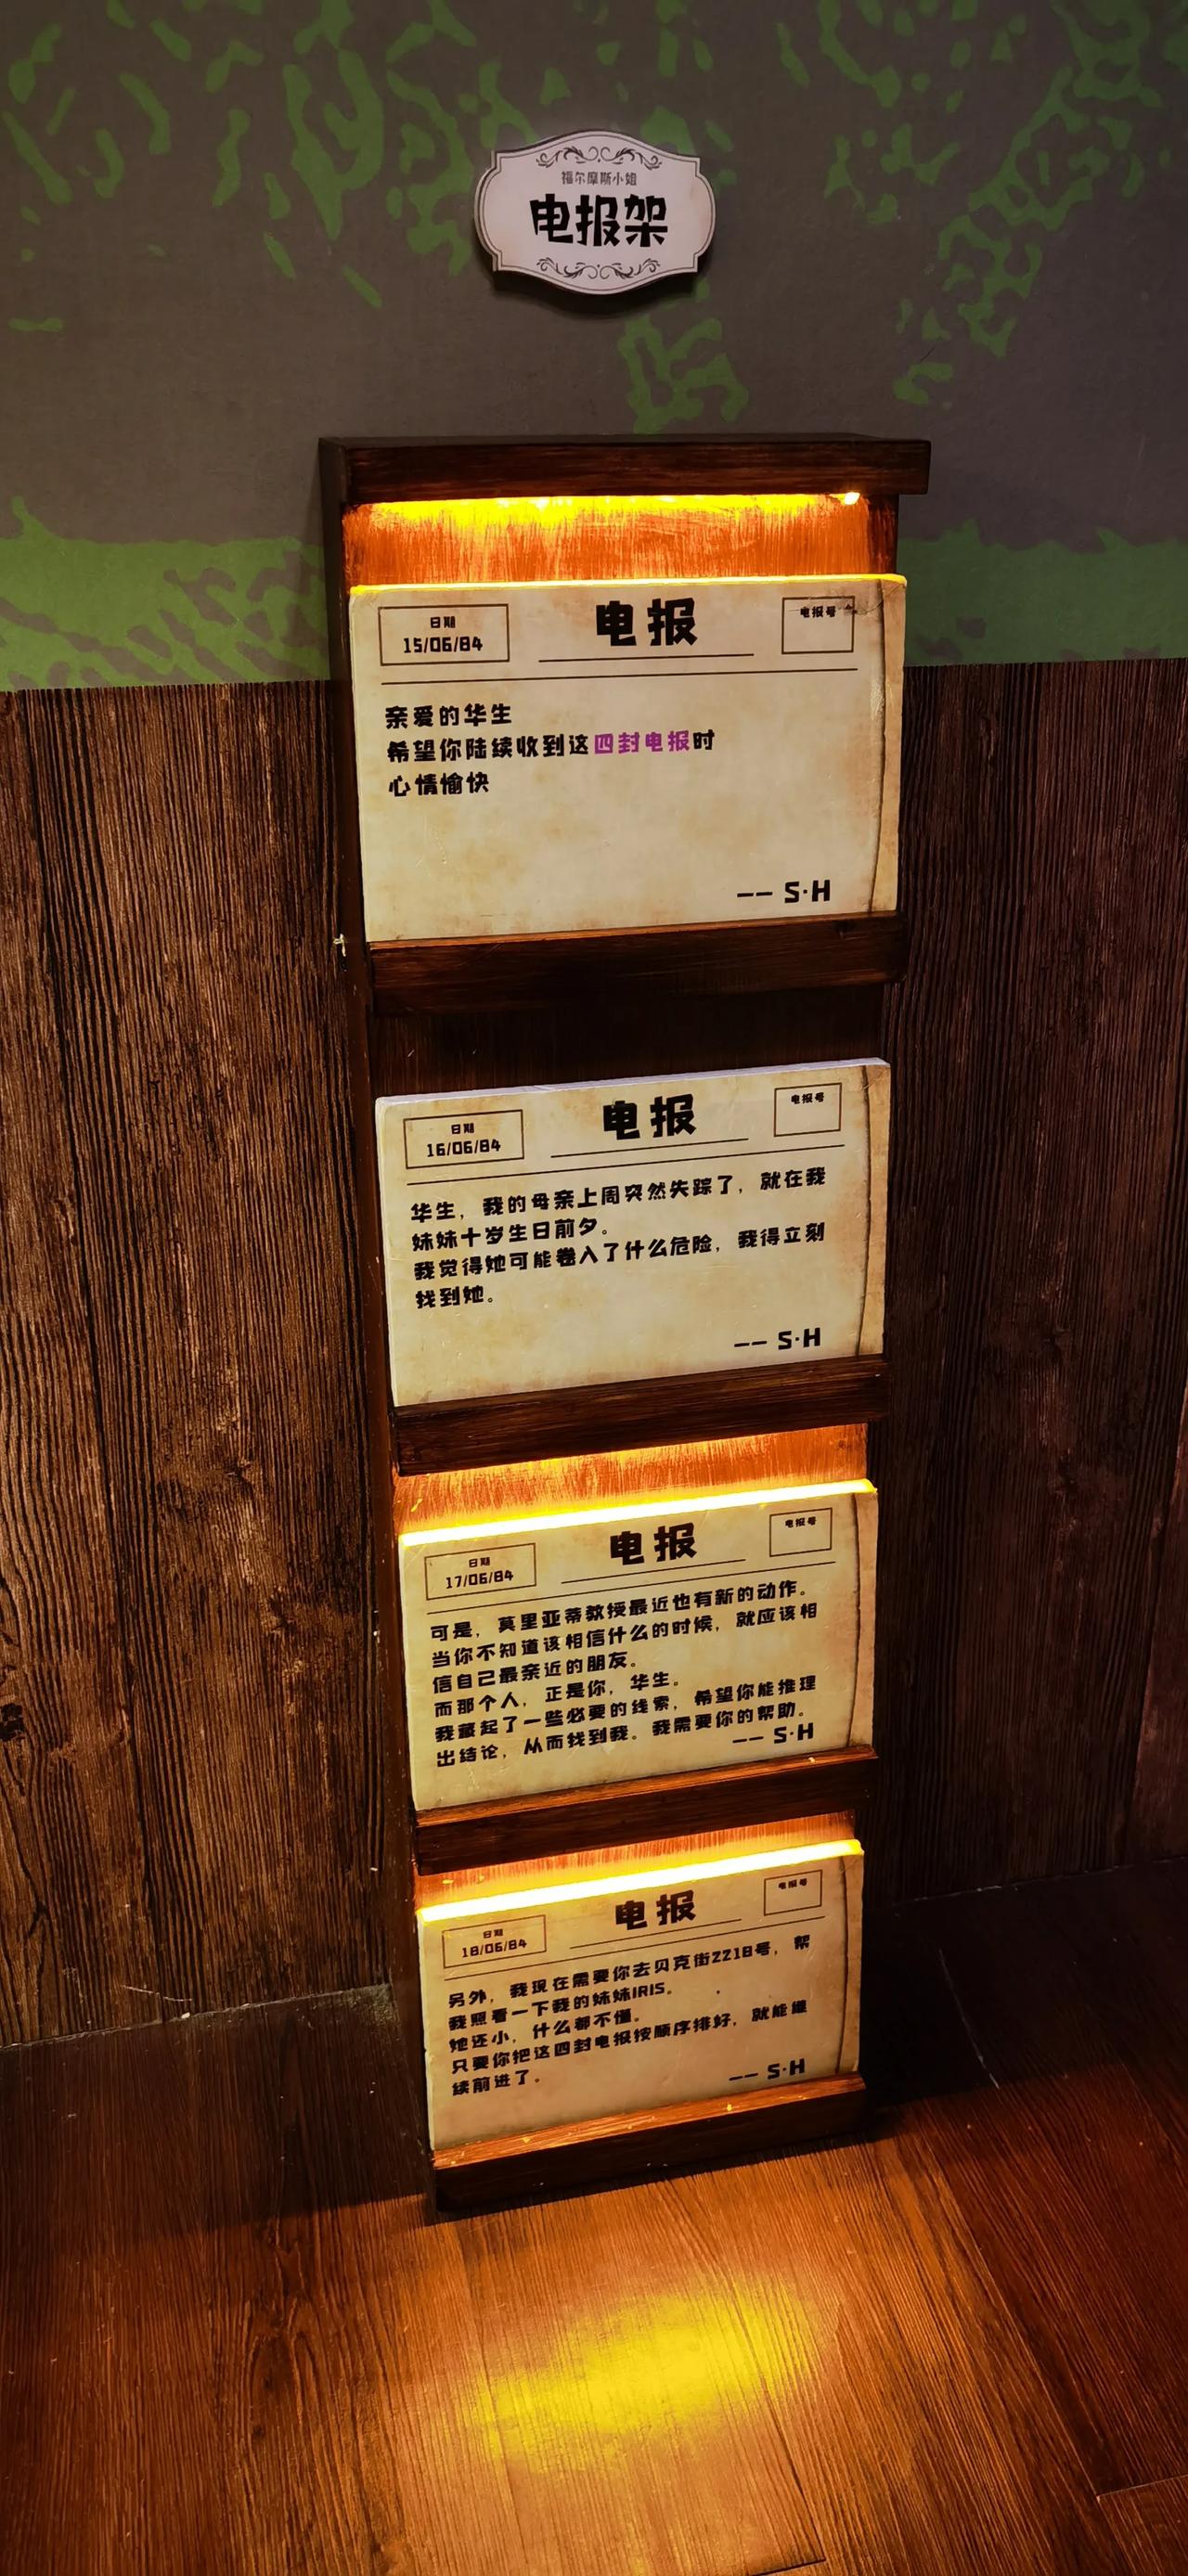 福尔摩斯小姐
电报架
日期
15/06/84
电报
电报号
亲爱的华生
希望你陆续收到这四封电报时
心情愉快
—— S·H
日期
16/06/84
电报
电报号
华生，我的母亲上周突然失踪了，就在我
妹妹十岁生日前夕。
我觉得她可能卷入了什么危险，我得立刻
找到她。
—— S·H
日期
17/06/84
电报
电报号
可是，莫里亚蒂教授最近也有新的动作。
当你不知道该相信什么的时候，就应该相
信自己最亲近的朋友。
而那个人，正是你，华生。
我藏起了一些必要的线索，希望你能推理
出结论，从而找到我。我需要你的帮助。
—— S·H
日期
18/06/84
电报
电报号
另外，我现在需要你去贝克街221B号，帮
我照看一下我的妹妹IRIS。
她还小，什么都不懂。
只要你把这四封电报按顺序排好，就能继
续前进了。
—— S·H